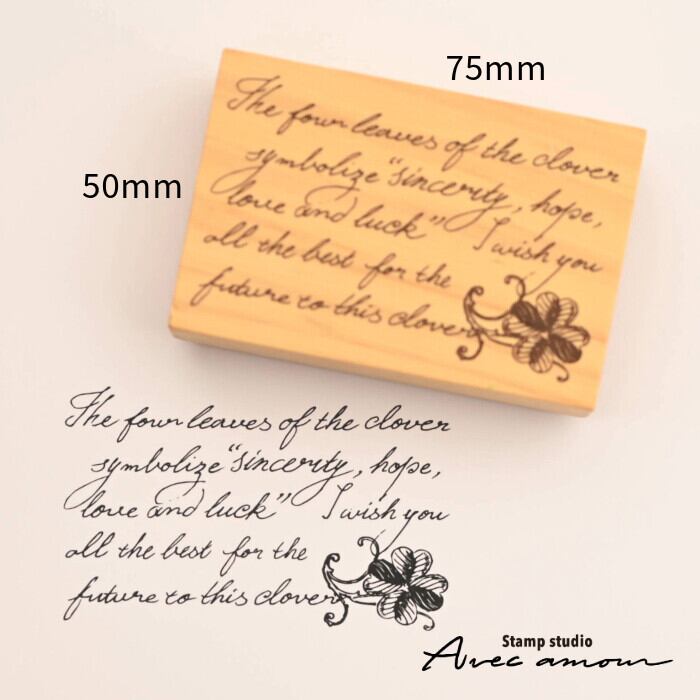 75mm
50mm
The four leaves of the clover
symbolize "sincerity, hope,
love and luck" I wish you
all the best for the
future to this clover
The four leaves of the clover
symbolize "sincerity, hope,
love and luck" I wish you
all the best for the
future to this clover
Stamp studio
Avec amour